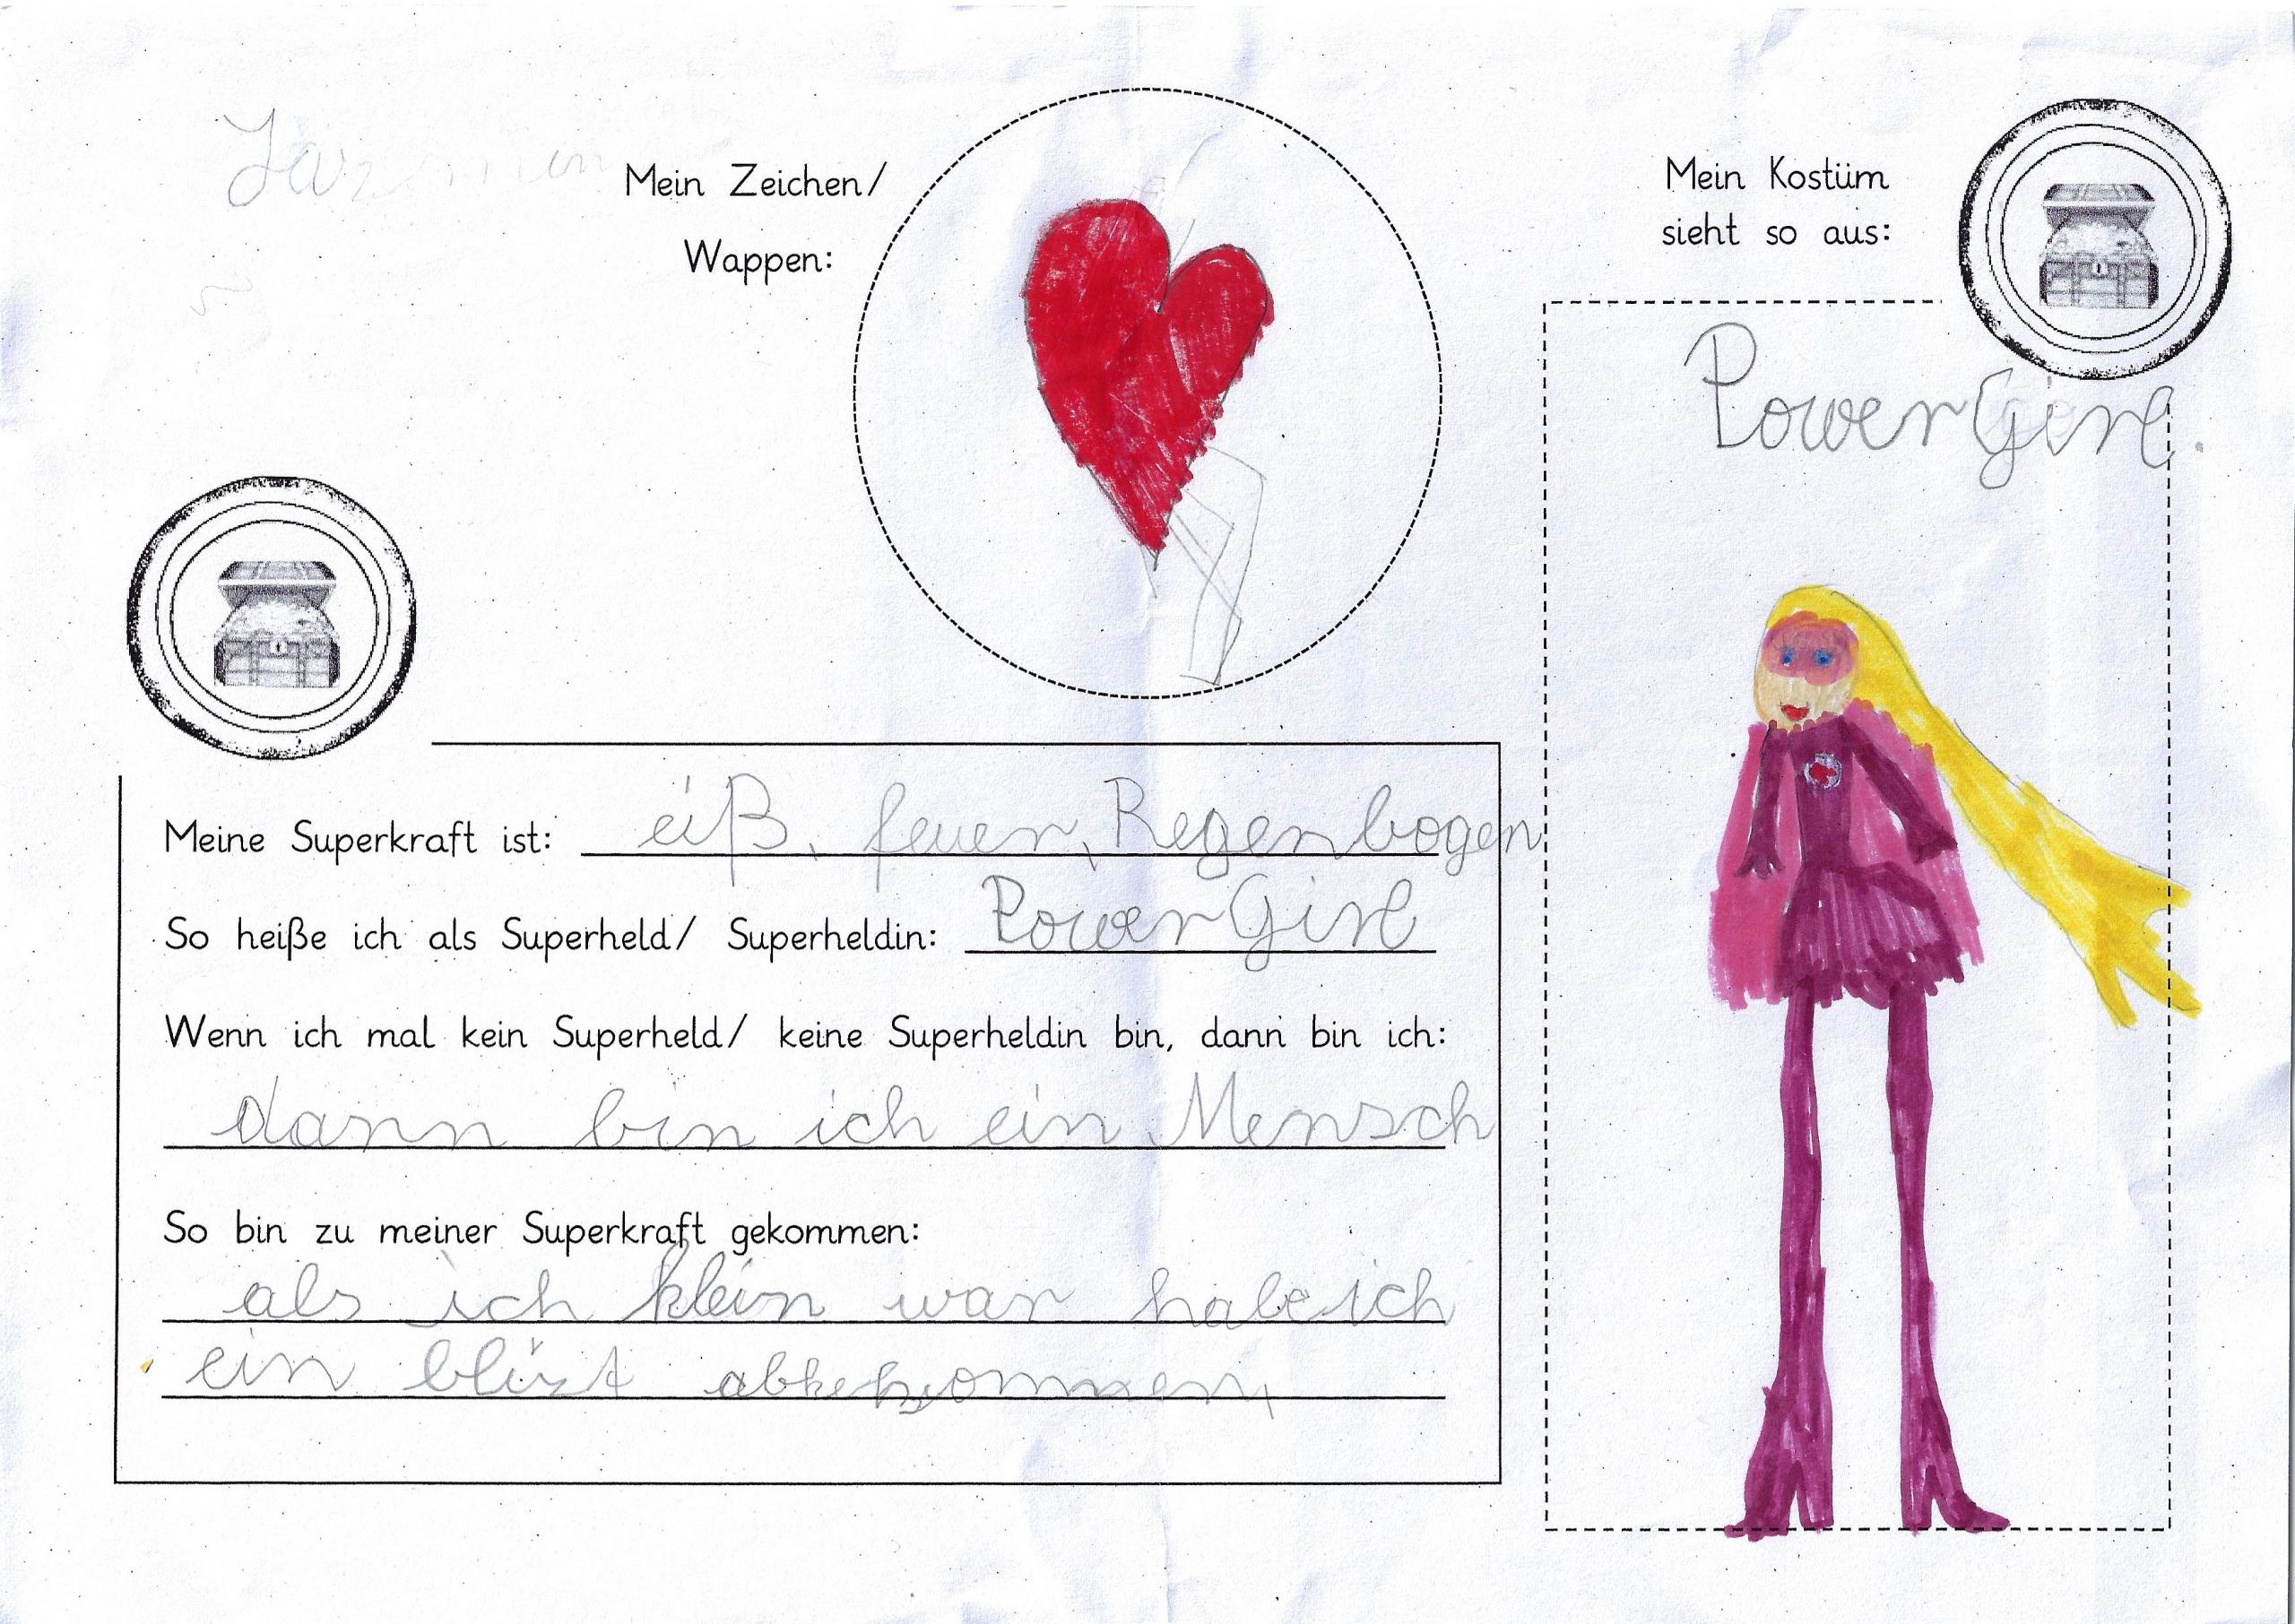 Mein Zeichen/
Wappen:
Mein Kostüm
sieht so aus:
PowerGirl.
Meine Superkraft ist: eiß, feuer, Regenbogen
So heiße ich als Superheld/ Superheldin: PowerGirl
Wenn ich mal kein Superheld/ keine Superheldin bin, dann bin ich:
dann bin ich ein Mensch
So bin zu meiner Superkraft gekommen:
als ich klein war habe ich
ein